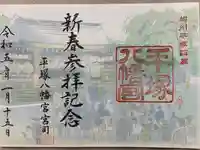 相州平塚四宮
新春参拝記念
平塚八幡宮
平塚八幡宮宮司
令和五年一月十五日